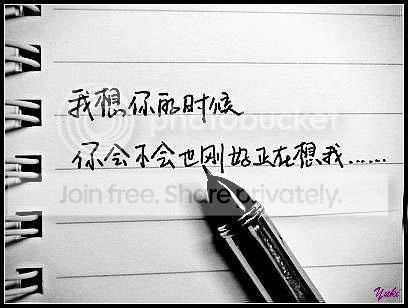 我想你的时候
photobucket
你会不会也刚好正在想我......
Join free. Share privately.
Yuki